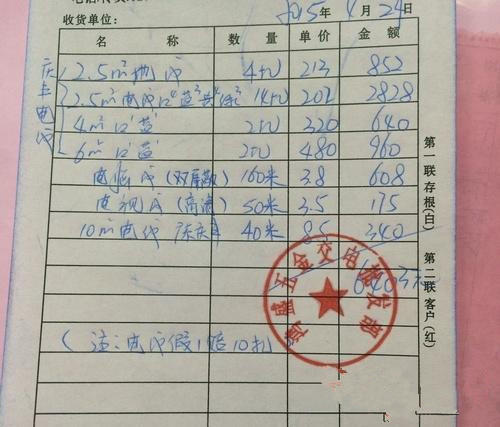 收货单位： 2015年4月24日
名 称 数量 单价 金额
庆丰电线
2.5m²地线 4卷 213 852
2.5m²电线 14卷 202 2828
4m² 2卷 320 640
6m² 2卷 480 960
电脑线（双屏蔽） 160米 3.8 608
电视线（高清） 50米 3.5 175
10m²电线 40米 8.5 340
（注：电线假1赔10扎）
五金交电批发部
第一联存根(白)
第二联客户(红)